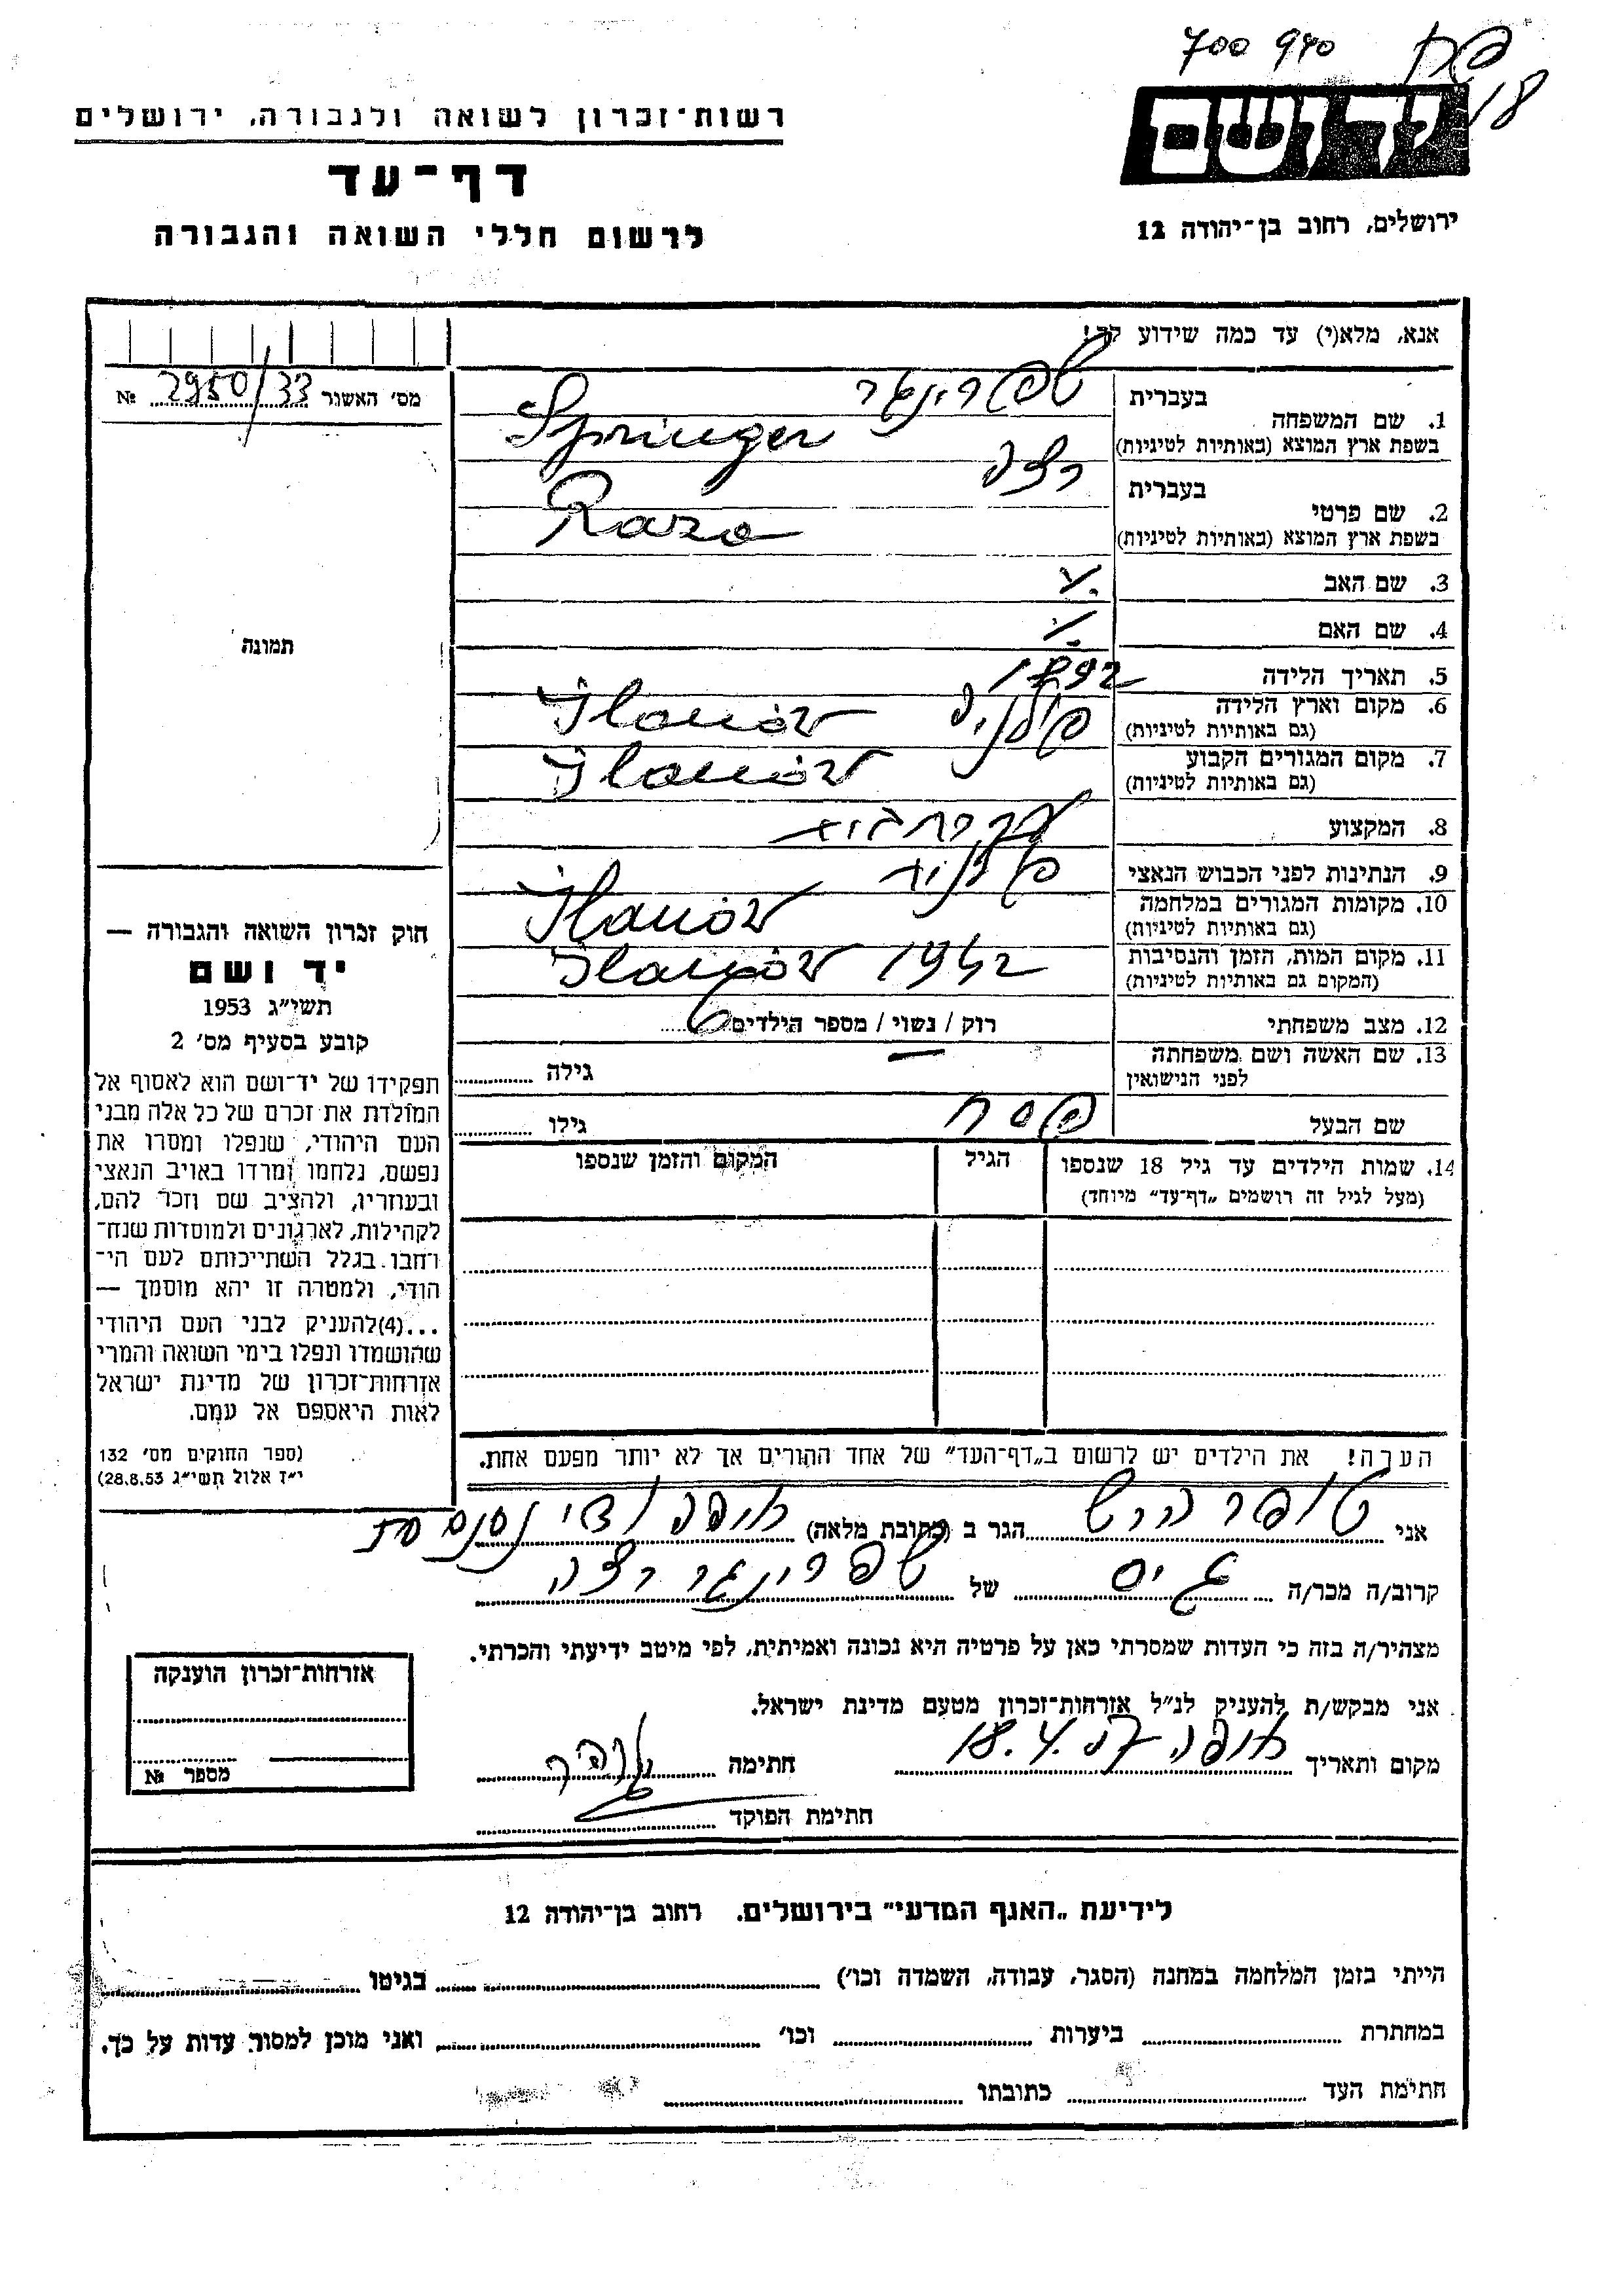 700 940
18
יד ושם
רשות־זכרון לשואה ולגבורה, ירושלים
דף־עד
לרשום חללי השואה והגבורה
ירושלים, רחוב בן־יהודה 12
אנא, מלא(י) עד כמה שידוע לך!
מס׳ האשור 2950/33 №
1. שם המשפחה
בעברית שפרינגר
בשפת ארץ המוצא (באותיות לטיניות) Springer
2. שם פרטי
בעברית רוזה
בשפת ארץ המוצא (באותיות לטיניות) Roza
3. שם האב
4. שם האם
5. תאריך הלידה 1892
6. מקום וארץ הלידה
(גם באותיות לטיניות) פולניה
7. מקום המגורים הקבוע
(גם באותיות לטיניות)
8. המקצוע
9. הנתינות לפני הכבוש הנאצי
10. מקומות המגורים במלחמה
(גם באותיות לטיניות)
11. מקום המות, הזמן והנסיבות
(המקום גם באותיות לטיניות) 1942
12. מצב משפחתי רוק / נשוי / מספר הילדים 6
13. שם האשה ושם משפחתה
לפני הנישואין — גילה
שם הבעל פסח גילו
14. שמות הילדים עד גיל 18 שנספו
(מעל לגיל זה רושמים „דף־עד״ מיוחד)
הגיל
המקום והזמן שנספו
הערה! את הילדים יש לרשום ב„דף־העד״ של אחד ההורים אך לא יותר מפעם אחת.
תמונה
חוק זכרון השואה והגבורה —
יד ושם
תשי״ג 1953
קובע בסעיף מס׳ 2
תפקידו של יד־ושם הוא לאסוף אל
המולדת את זכרם של כל אלה מבני
העם היהודי, שנפלו ומסרו את
נפשם, נלחמו ומרדו באויב הנאצי
ובעוזריו, ולהציב שם וזכר להם,
לקהילות, לארגונים ולמוסדות שנח־
רחבו בגלל השתייכותם לעם הי־
הודי, ולמטרה זו יהא מוסמך —
...(4)להעניק לבני העם היהודי
שהושמדו ונפלו בימי השואה והמרי
אזרחות־זכרון של מדינת ישראל
לאות היאספם אל עמם.
(ספר החוקים מס׳ 132
י״ז אלול תשי״ג 28.8.53)
אני הגר ב (כתובת מלאה) חיפה
קרוב/ה מכר/ה גיס של שפרינגר רוזה
מצהיר/ה בזה כי העדות שמסרתי כאן על פרטיה היא נכונה ואמיתית, לפי מיטב ידיעתי והכרתי.
אני מבקש/ת להעניק לנ״ל אזרחות־זכרון מטעם מדינת ישראל.
מקום ותאריך חיפה 18.4. חתימה
חתימת הפוקד
אזרחות־זכרון הוענקה
מספר №
לידיעת „האגף המדעי״ בירושלים, רחוב בן־יהודה 12
הייתי בזמן המלחמה במחנה (הסגר, עבודה, השמדה וכו׳) בגיטו
במחתרת ביערות וכו׳ ואני מוכן למסור עדות על כך.
חתימת העד כתובתו